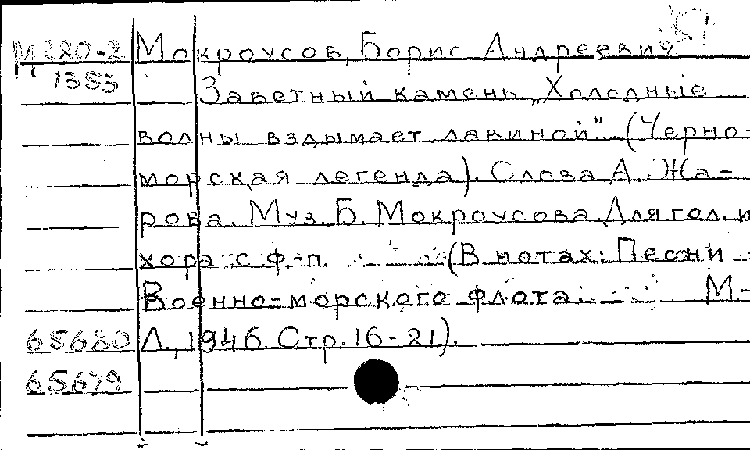 М 220-2 Мокроусов, Борис Андреевич
1383 Заветный камень „Холодные
волны вздымает лавиной" (Черно-
морская легенда). Слова А. Жа-
рова. Муз. Б. Мокроусова. Для гол. и
хора с ф.-п. (В нотах: Песни
Военно-морского флота. М.-
65680 Л., 1946 Стр. 16-21).
65679